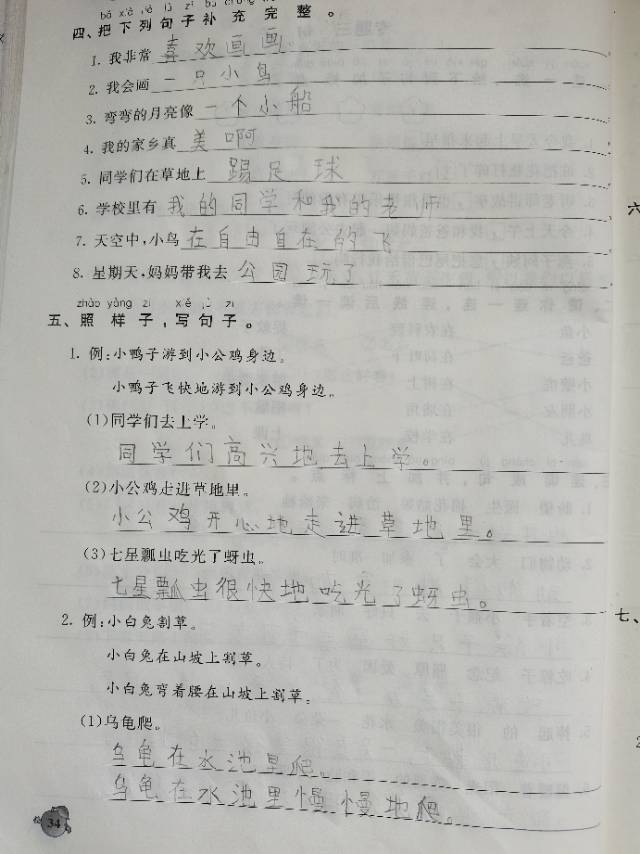 bǎ xià liè jù zi bǔ chōng wán zhěng
四、把下列句子补充完整。
1. 我非常 喜欢画画
2. 我会画 一只小鸟
3. 弯弯的月亮像 一个小船
4. 我的家乡真 美啊
5. 同学们在草地上 踢足球
6. 学校里有 我的同学和我的老师
7. 天空中,小鸟 在自由自在的飞
8. 星期天,妈妈带我去 公园玩了
zhào yàng zi xiě jù zi
五、照样子,写句子。
1. 例:小鸭子游到小公鸡身边。
小鸭子飞快地游到小公鸡身边。
(1)同学们去上学。
同学们高兴地去上学。
(2)小公鸡走进草地里。
小公鸡开心地走进草地里。
(3)七星瓢虫吃光了蚜虫。
七星瓢虫很快地吃光了蚜虫。
2. 例:小白兔割草。
小白兔在山坡上割草。
小白兔弯着腰在山坡上割草。
(1)乌龟爬。
乌龟在水池里爬。
乌龟在水池里慢慢地爬。
34
六
七、